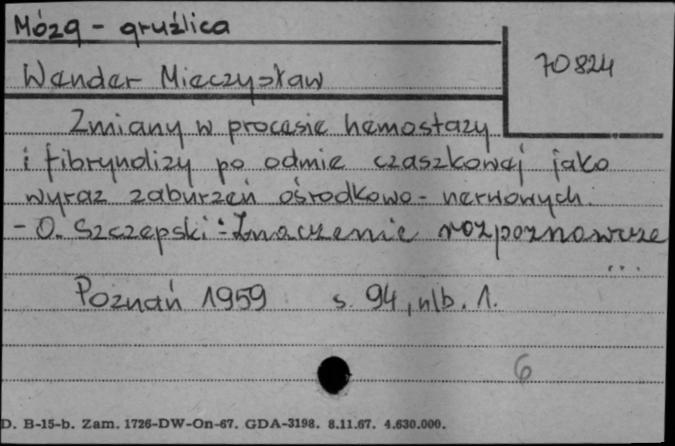 Mózg - gruźlica
Wender Mieczysław
70824
Zmiany w procesie hemostazy
i fibrynolizy po odmie czaszkowej jako
wyraz zaburzeń ośrodkowo-nerwowych.
- O. Szczepski: Znaczenie rozpoznawcze
...
Poznań 1959 s. 94, nlb. 1.
6
D. B-15-b. Zam. 1726-DW-On-67. GDA-3198. 8.11.67. 4.630.000.